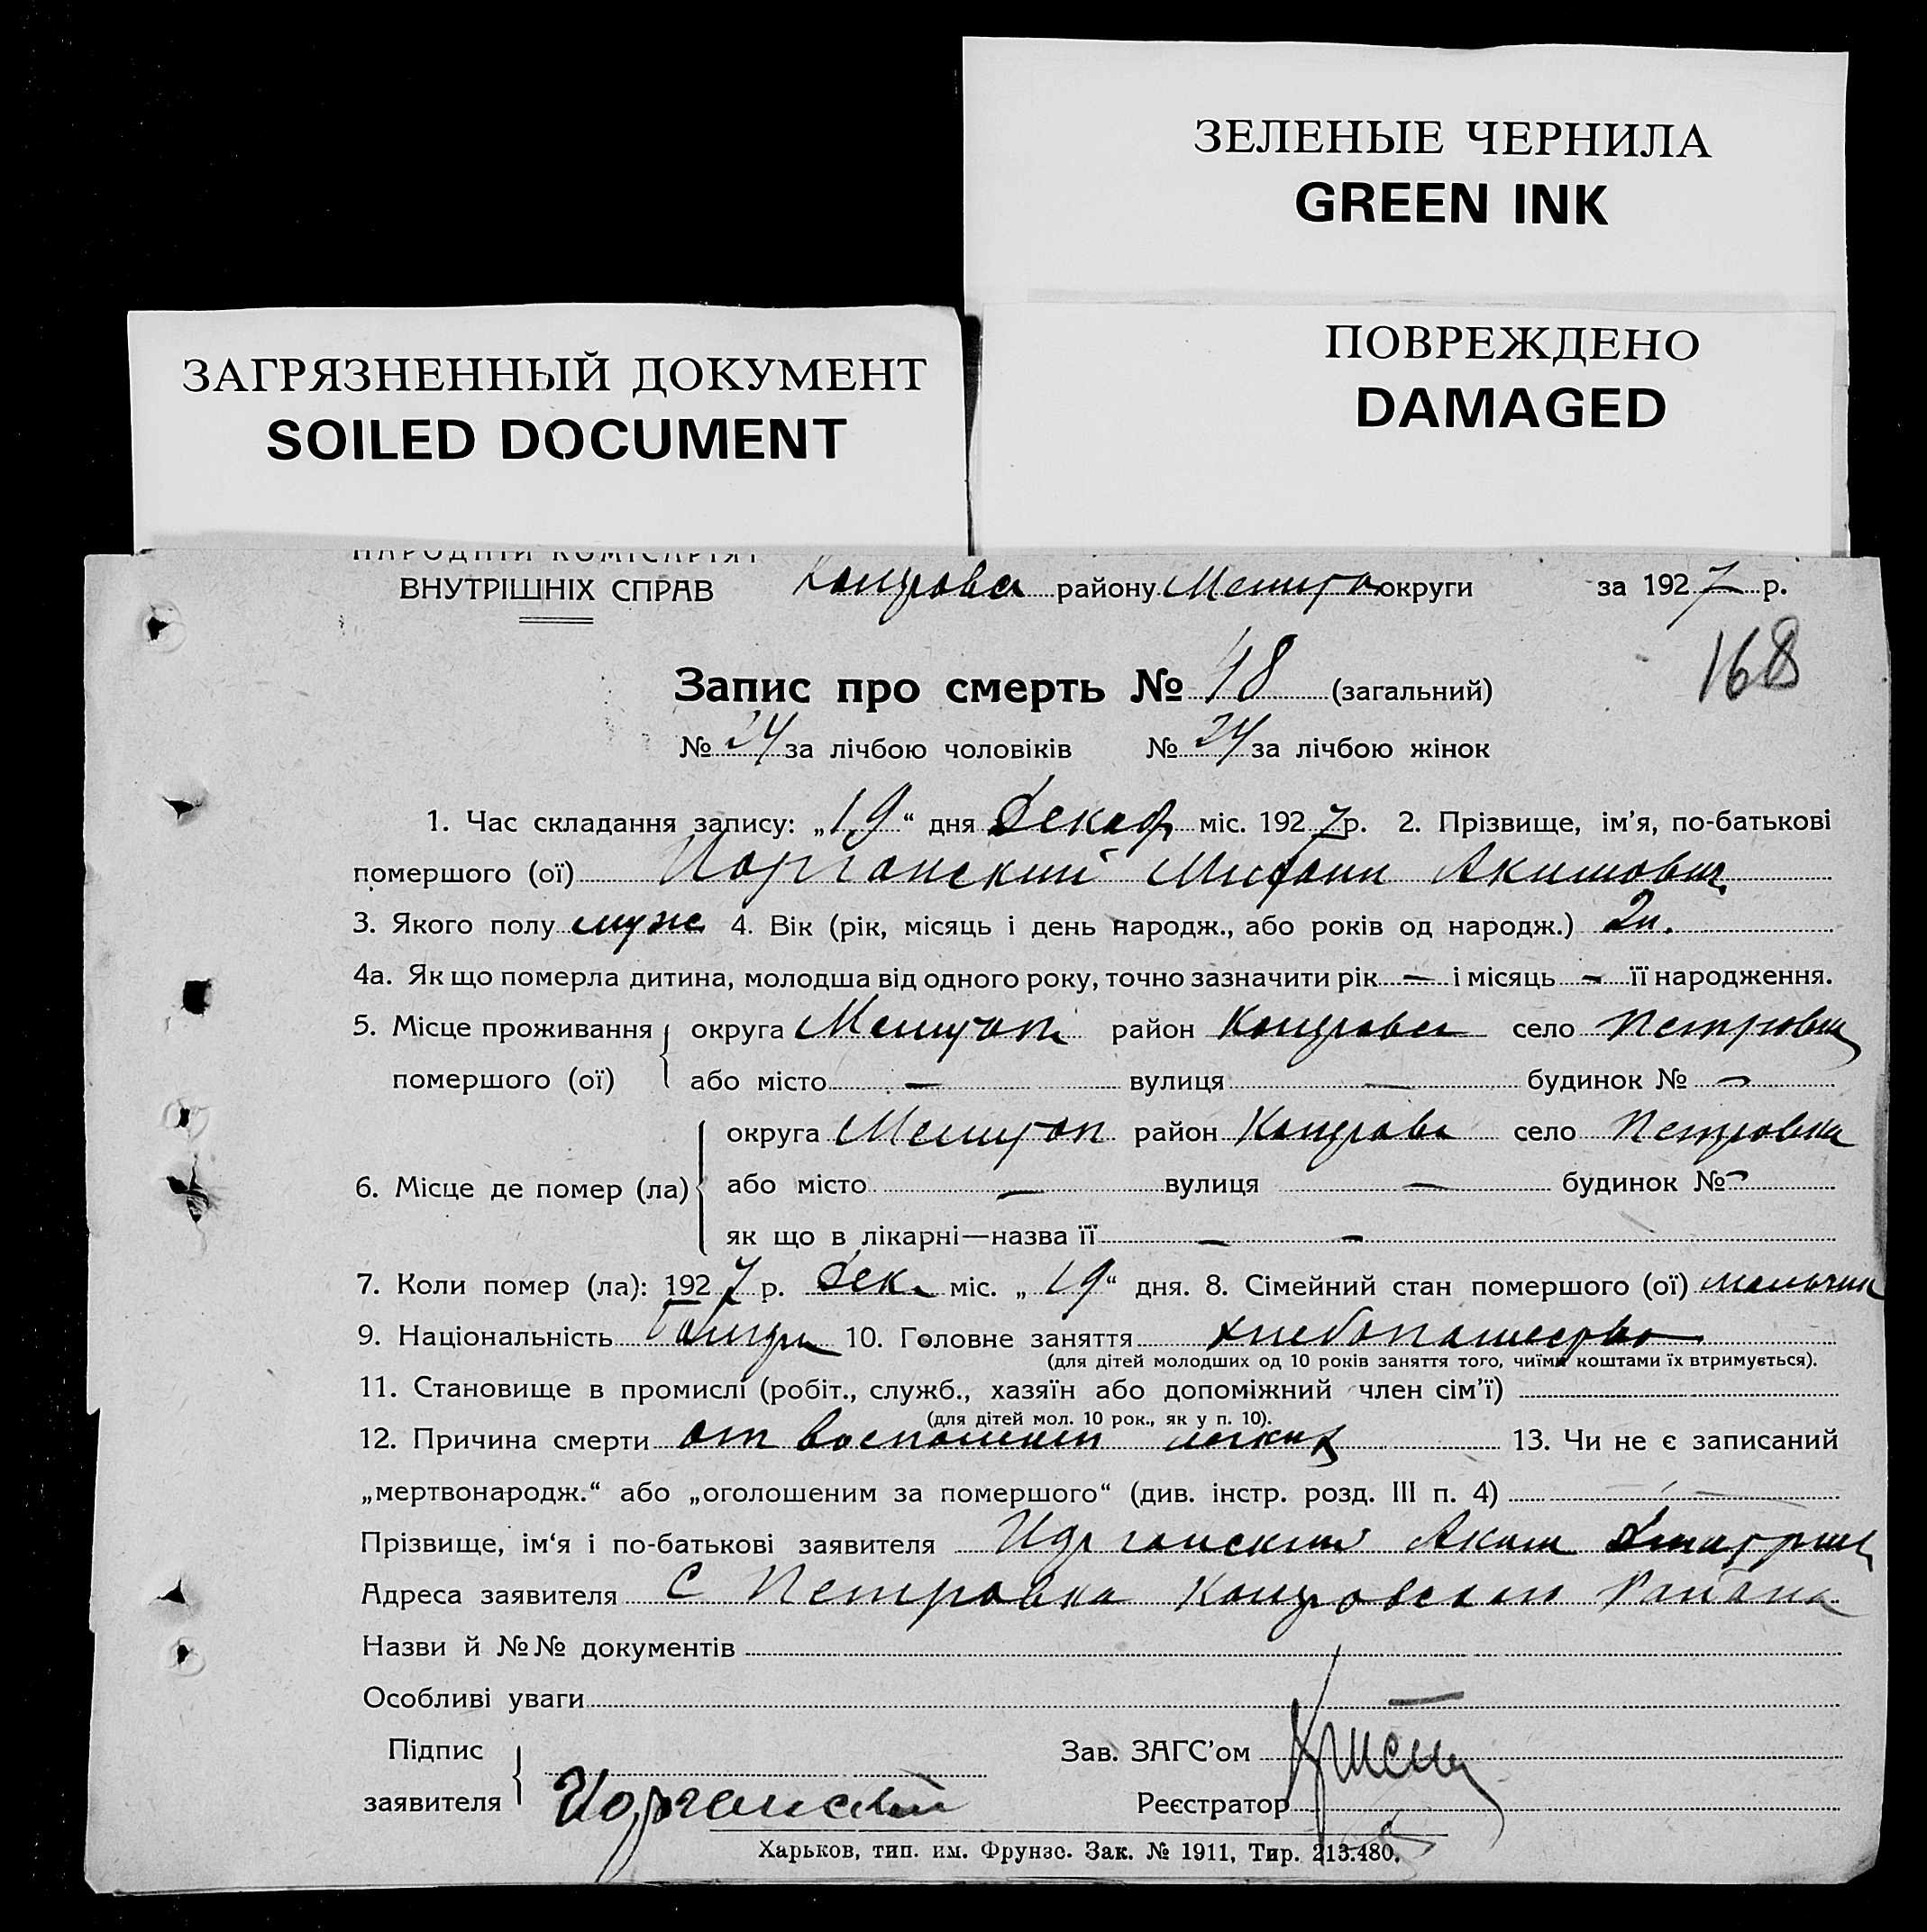 ЗЕЛЕНЫЕ ЧЕРНИЛА
GREEN INK
ПОВРЕЖДЕНО
DAMAGED
ЗАГРЯЗНЕННЫЙ ДОКУМЕНТ
SOILED DOCUMENT
НАРОДНІЙ КОМІСАРІЯТ
ВНУТРІШНІХ СПРАВ району округи за 1927 р.
168
Запис про смерть № 48 (загальний)
№ 24 за лічбою чоловіків № 24 за лічбою жінок
1. Час складання запису: „19“ дня Декаб міс. 1927 р. 2. Прізвище, ім’я, по-батькові
помершого (ої) Иорганский Акимович
3. Якого полу муж 4. Вік (рік, місяць і день народж., або років од народж.) 2
4а. Як що померла дитина, молодша від одного року, точно зазначити рік — і місяць — її народження.
5. Місце проживання округа Мелитоп район село Петровка
помершого (ої) або місто — вулиця — будинок № —
округа Мелитоп район село Петровка
6. Місце де помер (ла) або місто — вулиця — будинок № —
як що в лікарні—назва її — —
7. Коли помер (ла): 1927 р. Дек. міс. „19“ дня. 8. Сімейний стан помершого (ої) мальчик
9. Національність 10. Головне заняття хлебопашество
(для дітей молодших од 10 років заняття того, чиїми коштами їх втримується).
11. Становище в промислі (робіт., служб., хазяїн або допоміжний член сім’ї)
(для дітей мол. 10 рок., як у п. 10).
12. Причина смерти от воспаления легких 13. Чи не є записаний
„мертвонародж.“ або „оголошеним за помершого“ (див. інстр. розд. III п. 4) —
Прізвище, ім‘я і по-батькові заявителя Иорганский Аким
Адреса заявителя С Петровка Района
Назви й №№ документів
Особливі уваги —
Підпис Зав. ЗАГС’ом
заявителя Иорганский Реєстратор
Харьков, тип. им. Фрунзе. Зак. № 1911, Тир. 213.480.